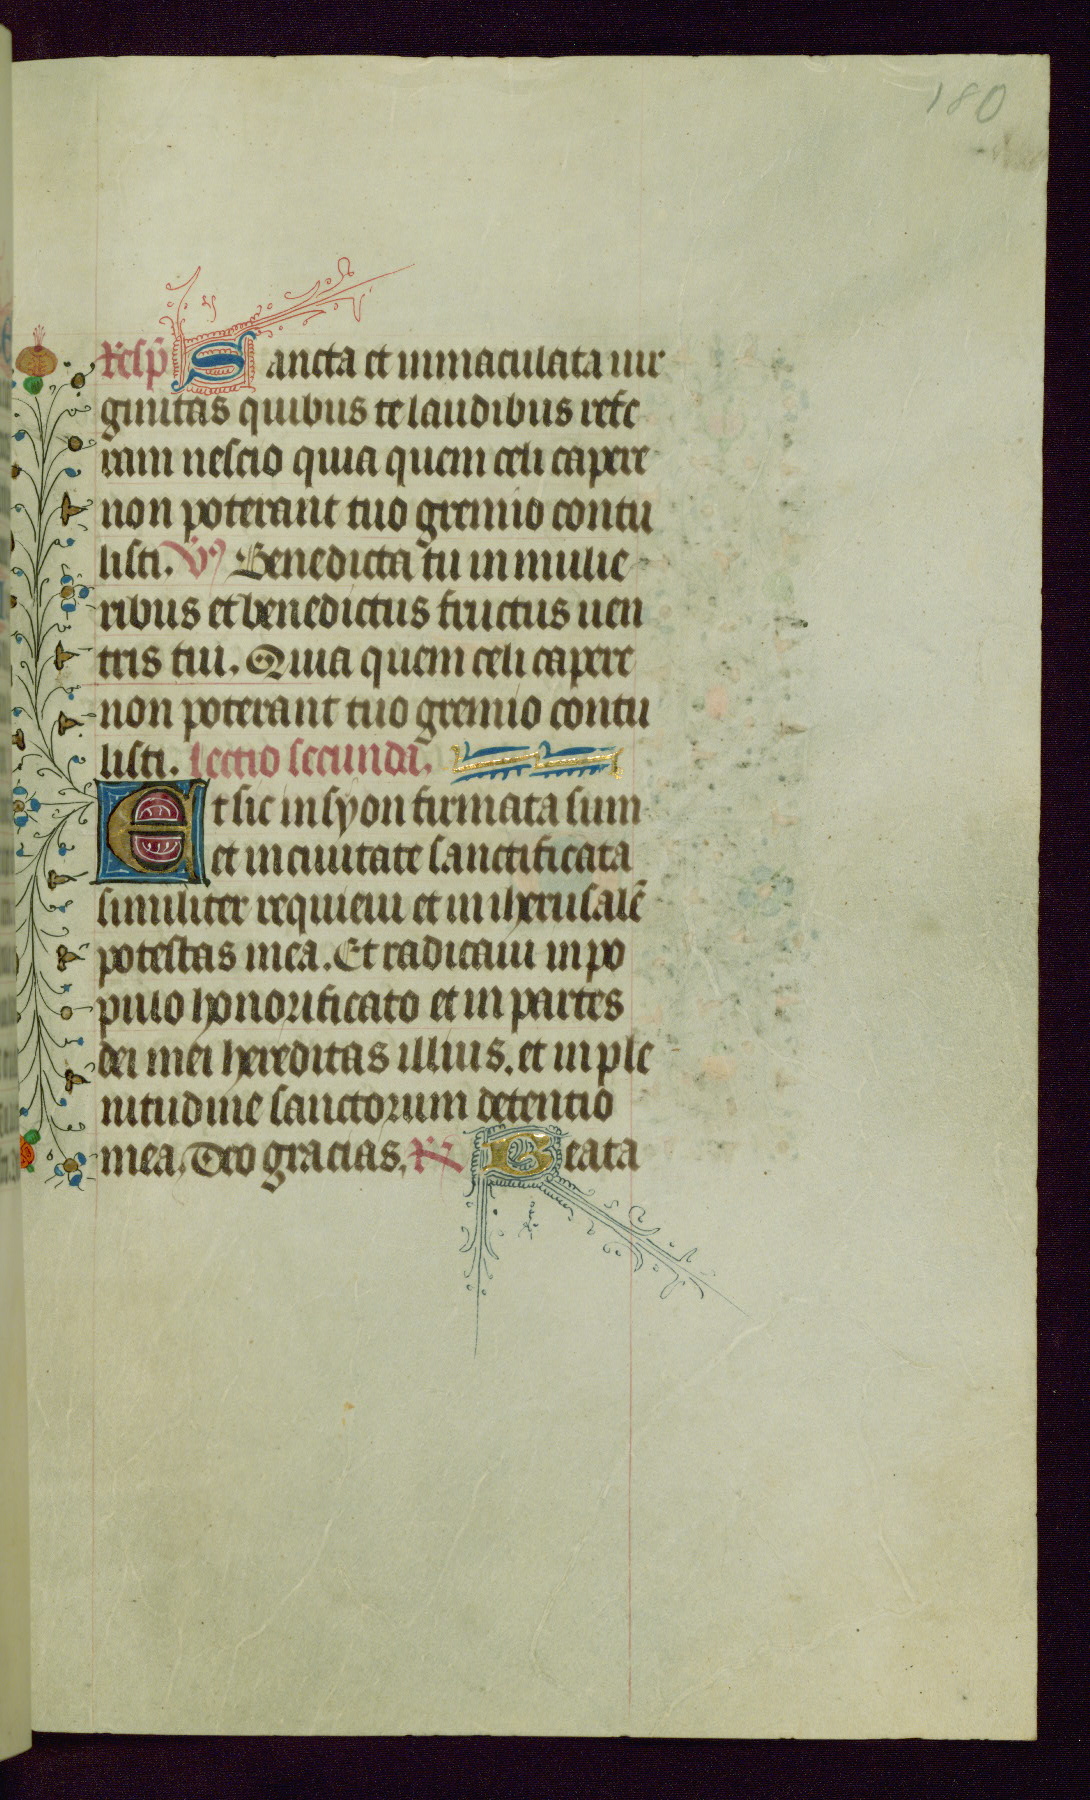 180
Resp̄ Sancta et inmaculata uir
ginitas quibus te laudibus refe
ram nescio quia quem celi capere
non poterant tuo gremio contu
listi. V̄ Benedicta tu in mulie
ribus et benedictus fructus uen
tris tui. Quia quem celi capere
non poterant tuo gremio contu
listi. lectio secunda.
Et sic in syon firmata sum
et in ciuitate sanctificata
similiter requieui et in iherusalē
potestas mea. Et radicaui in po
pulo honorificato et in partes
dei mei hereditas illius. et in ple
nitudine sanctorum detentio
mea. Deo gracias. R̄ Beata